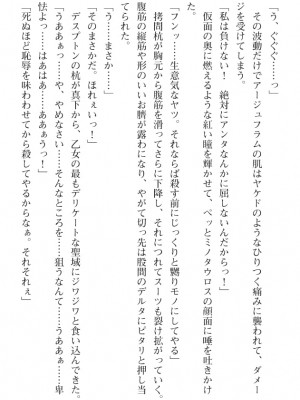 「う、ぐぐぐ……っ」
その波動だけでアージュフラムの肌はヤケドのようなひりつく痛みに襲われて、ダメー
ジを受けてしまう。
「私は負けない！　絶対にアンタなんかに屈しないんだからっ！」
仮面の奥に燃えるような紅い瞳を輝かせて、ペッとミノタウロスの顔面に唾を吐きかけ
た。
「フンッ……生意気なヤツ。それならば殺す前にじっくりと嬲りモノにしてやる」
拷問杭が胸元から腹筋を滑ってさらに下降し、それにつれてスーツも裂け拡がっていく。
腹筋の縦筋や形のいいお臍が露わになり、やがて切っ先は股間のデルタにピタリと押し当
てられた。
「う……まさか……」
「そのまさかだ。ほれぇいっ！」
デスプトンの杭が真下から、乙女の最もデリケートな聖域にジワジワと食い込んできた。
「うああぁっ……や、やめなさい……そんなところを……狙うなんて……うああぁ……卑
怯よっ……はあはあ……あああぅっ！」
「死ぬほど恥辱を味わわせてから殺してやるからなぁ。それそれぇ」